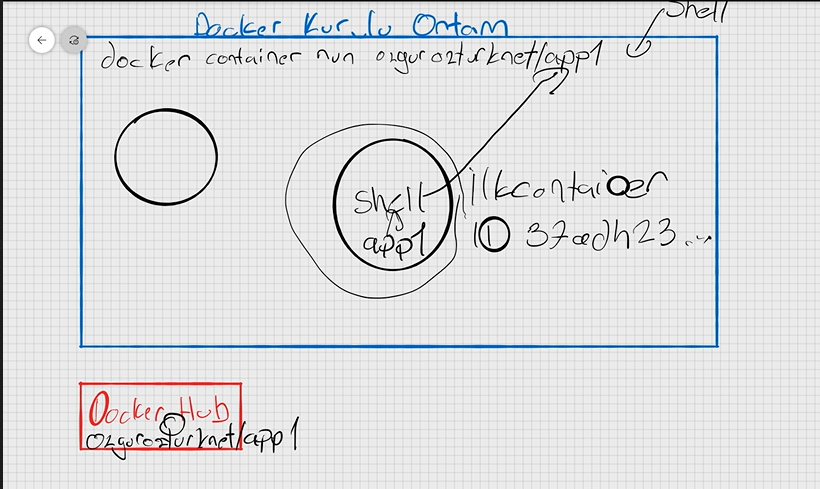 Shell
Docker Kurulu Ortam
docker container run ozgurozturknet/app1
shell
app1
ilkcontainer
ID 37adh23...
Docker Hub
ozgurozturknet/app1